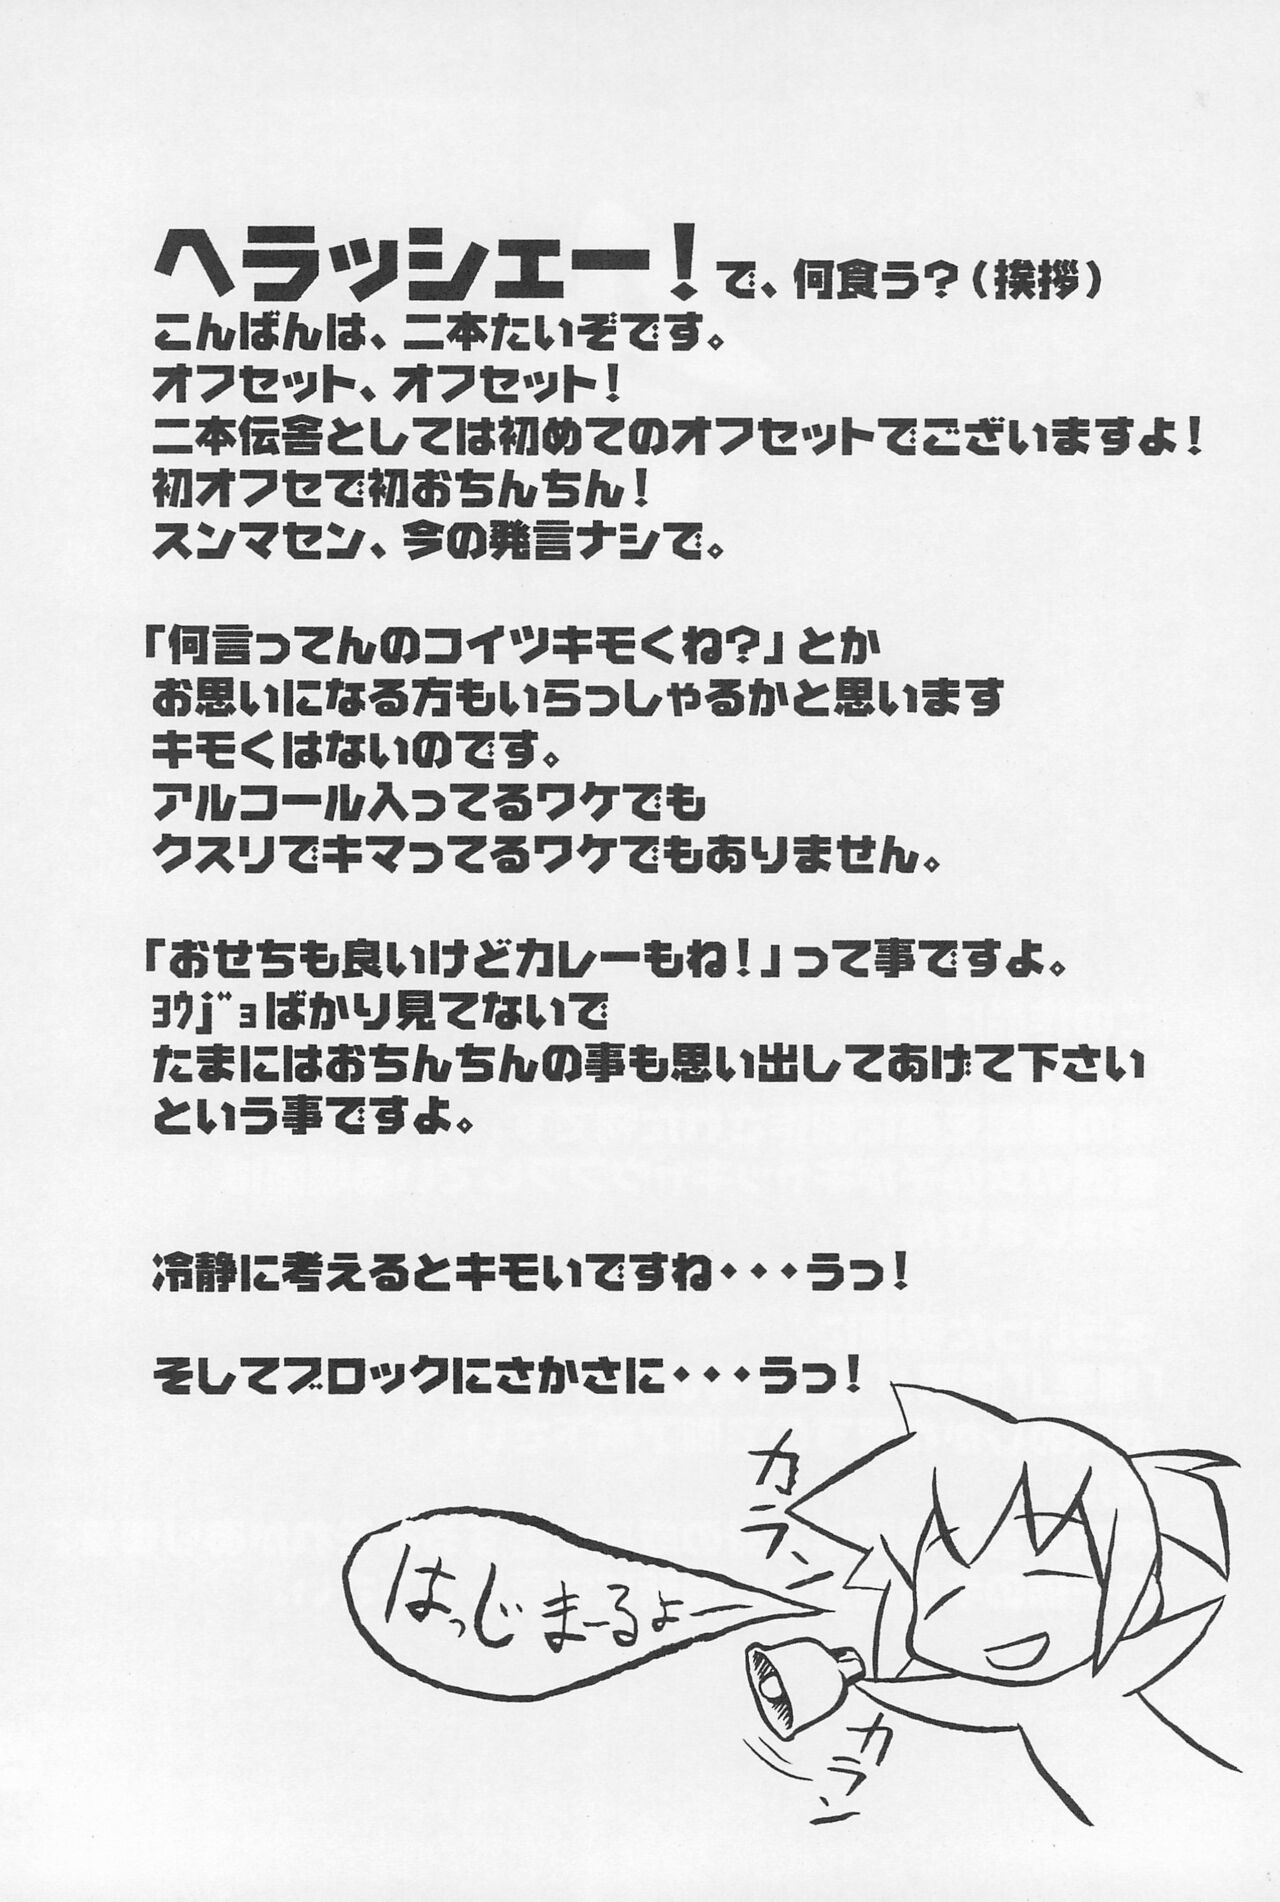 ヘラッシェー!で、何食う?(挨拶)
こんばんは、二本たいぞです。
オフセット、オフセット!
二本伝舎としては初めてのオフセットでございますよ!
初オフセで初おちんちん!
スンマセン、今の発言ナシで。
「何言ってんのコイツキモくね?」とか
お思いになる方もいらっしゃるかと思います
キモくはないのです。
アルコール入ってるワケでも
クスリでキマってるワケでもありません。
「おせちも良いけどカレーもね!」って事ですよ。
ﾖｳj゛ョばかり見てないで
たまにはおちんちんの事も思い出してあげて下さい
という事ですよ。
冷静に考えるとキモいですね・・・うっ!
そしてブロックにさかさに・・・うっ!
カラン
はっじまーるよー
カラン